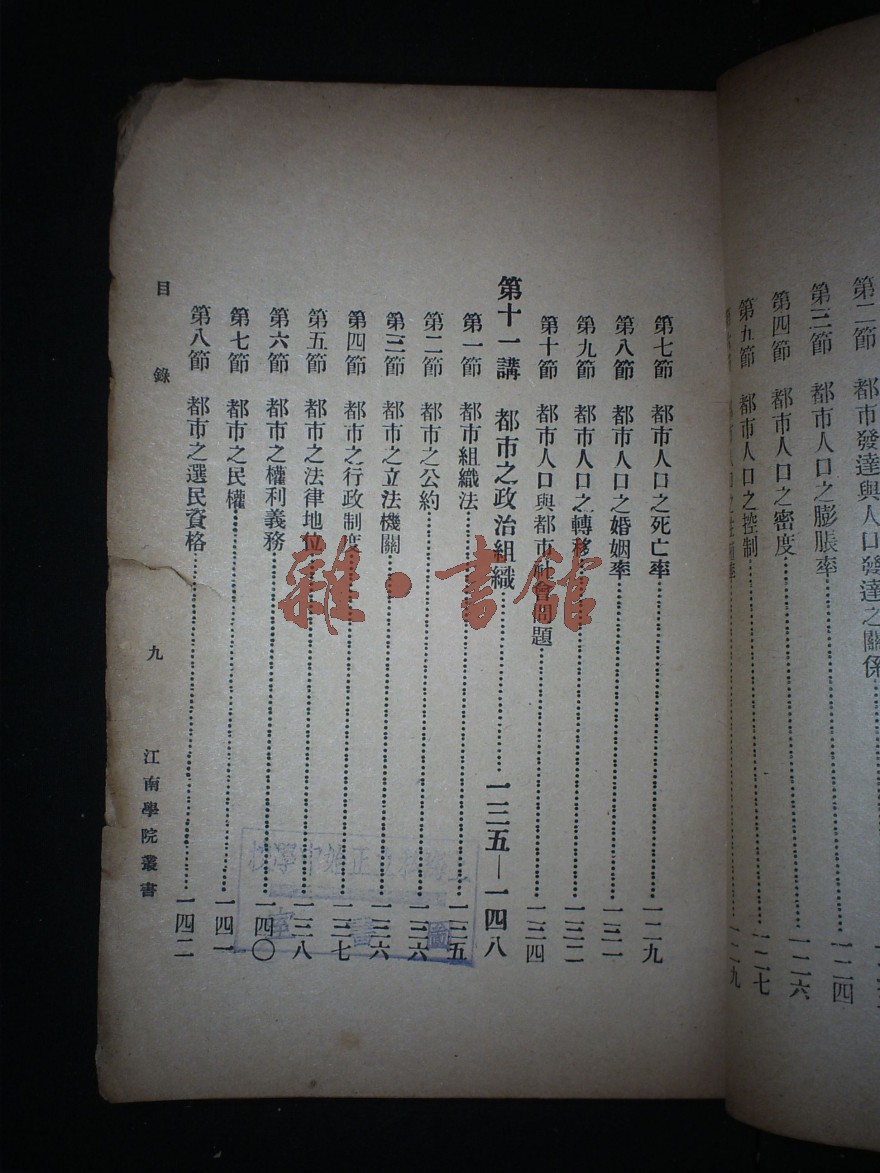 第二節 都市發達與人口發達之關係
第三節 都市人口之膨脹率 一二四
第四節 都市人口之密度 一二六
第九節 都市人口之控制 一二七
一二九
第七節 都市人口之死亡率 一二九
第八節 都市人口之婚姻率 一三一
第九節 都市人口之轉移 一三二
第十節 都市人口與都市社會問題 一三四
第十一講 都市之政治組織 一三五—一四八
第一節 都市組織法 一三五
第二節 都市之公約 一三六
第三節 都市之立法機關 一三六
第四節 都市之行政制度 一三七
第五節 都市之法律地位 一三八
第六節 都市之權利義務 一四〇
第七節 都市之民權 一四一
第八節 都市之選民資格 一四二
目錄 九 江南學院叢書
雜·書館
圖書室